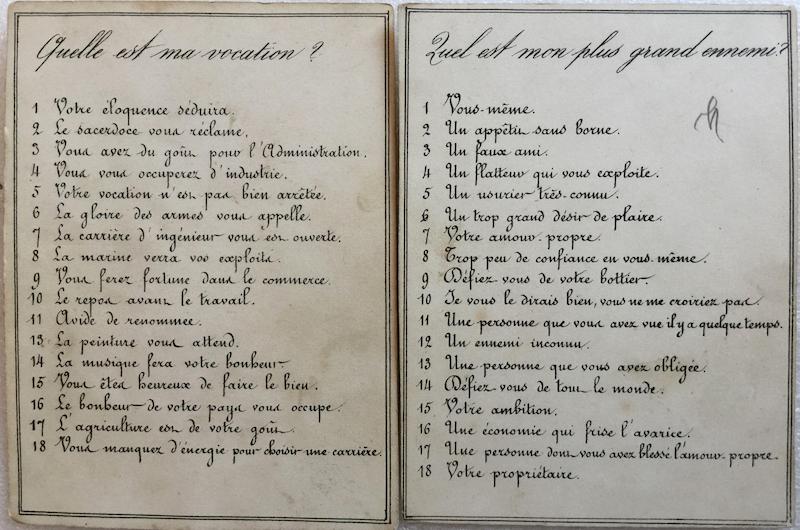 Quelle est ma vocation ?
1 Votre éloquence séduira.
2 Le sacerdoce vous réclame.
3 Vous avez du goût pour l'Administration.
4 Vous vous occuperez d'industrie.
5 Votre vocation n'est pas bien arrêtée.
6 La gloire des armes vous appelle.
7 La carrière d'ingénieur vous est ouverte.
8 La marine verra vos exploits.
9 Vous ferez fortune dans le commerce.
10 Le repos avant le travail.
11 Avide de renommee.
13 La peinture vous attend.
14 La musique fera votre bonheur
15 Vous êtes heureux de faire le bien.
16 Le bonheur de votre pays vous occupe.
17 L'agriculture est de votre goût.
18 Vous manquez d'énergie pour choisir une carrière.
Quel est mon plus grand ennemi ?
1 Vous-même.
2 Un appétit sans borne.
3 Un faux ami.
4 Un flatteur qui vous exploite.
5 Un usurier très-connu.
6 Un trop grand désir de plaire.
7 Votre amour-propre.
8 Trop peu de confiance en vous-même.
9 Défiez-vous de votre bottier.
10 Je vous le dirais bien, vous ne me croiriez pas.
11 Une personne que vous avez vue il y a quelque temps.
12 Un ennemi inconnu.
13 Une personne que vous avez obligée.
14 Défiez-vous de tout le monde.
15 Votre ambition.
16 Une économie qui frise l'avarice.
17 Une personne dont vous avez blessé l'amour-propre.
18 Votre propriétaire.